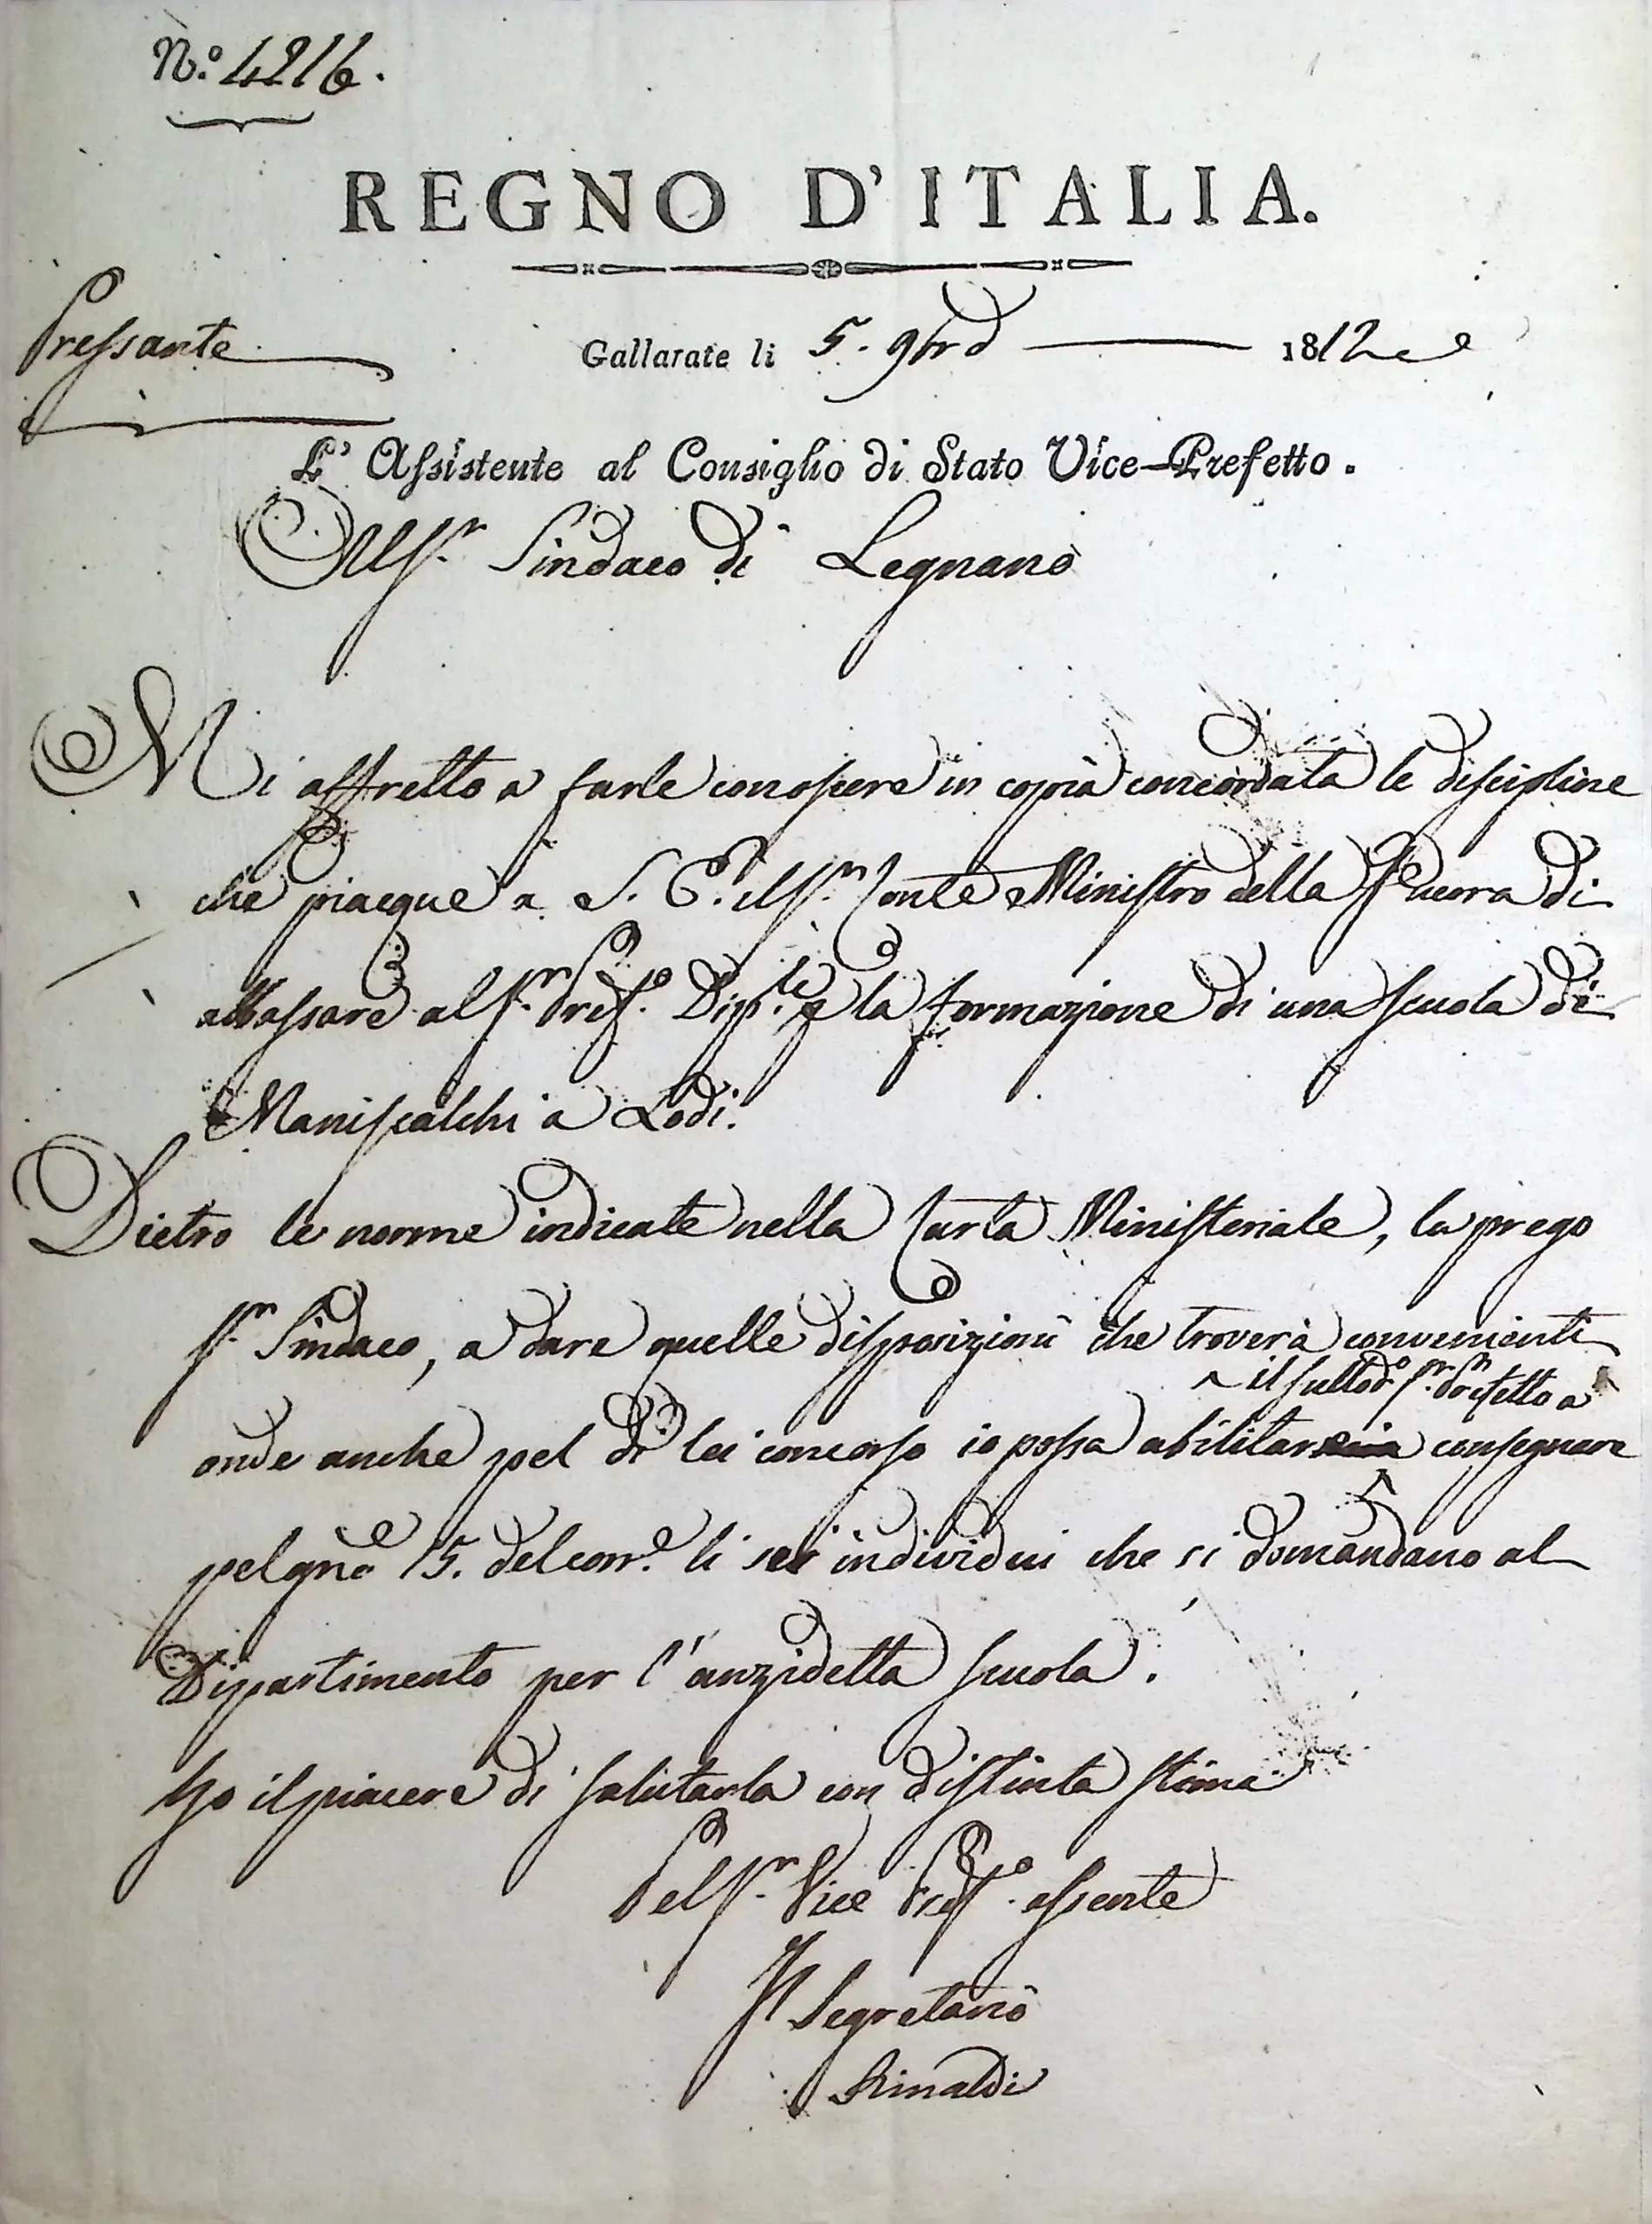 N.º 4216.
REGNO D'ITALIA.
Pressante
Gallarate li 5. 9bre 1812
L'Assistente al Consiglio di Stato Vice-Prefetto.
Al Sr. Sindaco di Legnano
Mi affretto a farle conoscere in copia concordata le discipline
che piacque a S. E. il Sr. Conte Ministro della Guerra di
abbassare al Sr. Prefo. Diple. per la formazione di una Scuola di
Maniscalchi a Lodi.
Dietro le norme indicate nella Carta Ministeriale, la prego
Sr. Sindaco, a dare quelle disposizioni che troverà convenienti
il sullodo. Sr. Prefetto a
onde anche pel di lei concorso io possa abilitare consegnare
pel gne. 15. del corre. li sei individui che si domandano al
Dipartimento per l'anzidetta scuola.
Ho il piacere di salutarla con distinta stima
Pel Sr. Vice Prefo. assente
Il Segretario
Rinaldi